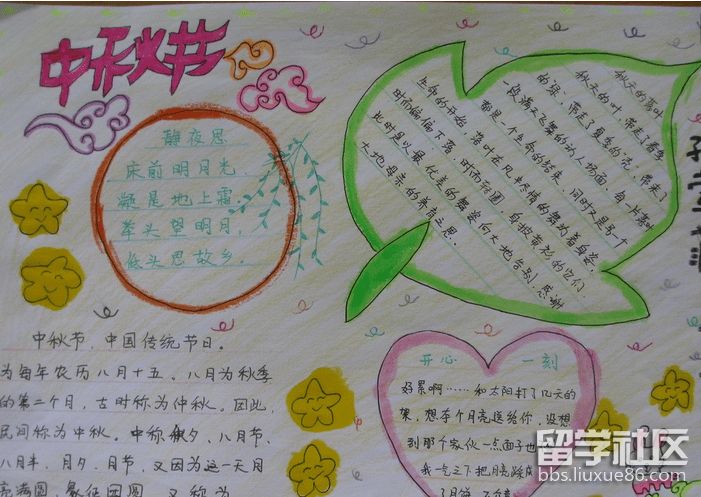 中秋节
静夜思
床前明月光,
凝是地上霜.
举头望明月,
低头思故乡.
秋天的落叶
秋天的叶,带走了春季
的绿、带走了夏季的亮,带来了
一段满天飞舞的动人场面、每一片落叶
都是一个生命的结束,同时又是另一个
生命的开始,落叶在风中尽情的舞动着身姿,
时而偏偏下落,时而转圈,身披黄衫的它们
此时是以最优美的舞姿向大地告别,感谢
大地母亲的养育之恩.
中秋节,中国传统节日。
为每年农历八月十五、八月为秋季
的第二个月,古时称为仲秋。因此,
民间称为中秋。中称 秋夕、八月节、
八月半、月夕、月节、又因为这一天月
亮满圆,象征团圆,又称为
开心 一刻
好累啊……和太阳打了几天的
架,想李个月亮送给你,没想
到那个家伙一点面子也
我一气之下把月亮踩成
了月饼
留学社区
bbs.liuxue86.com